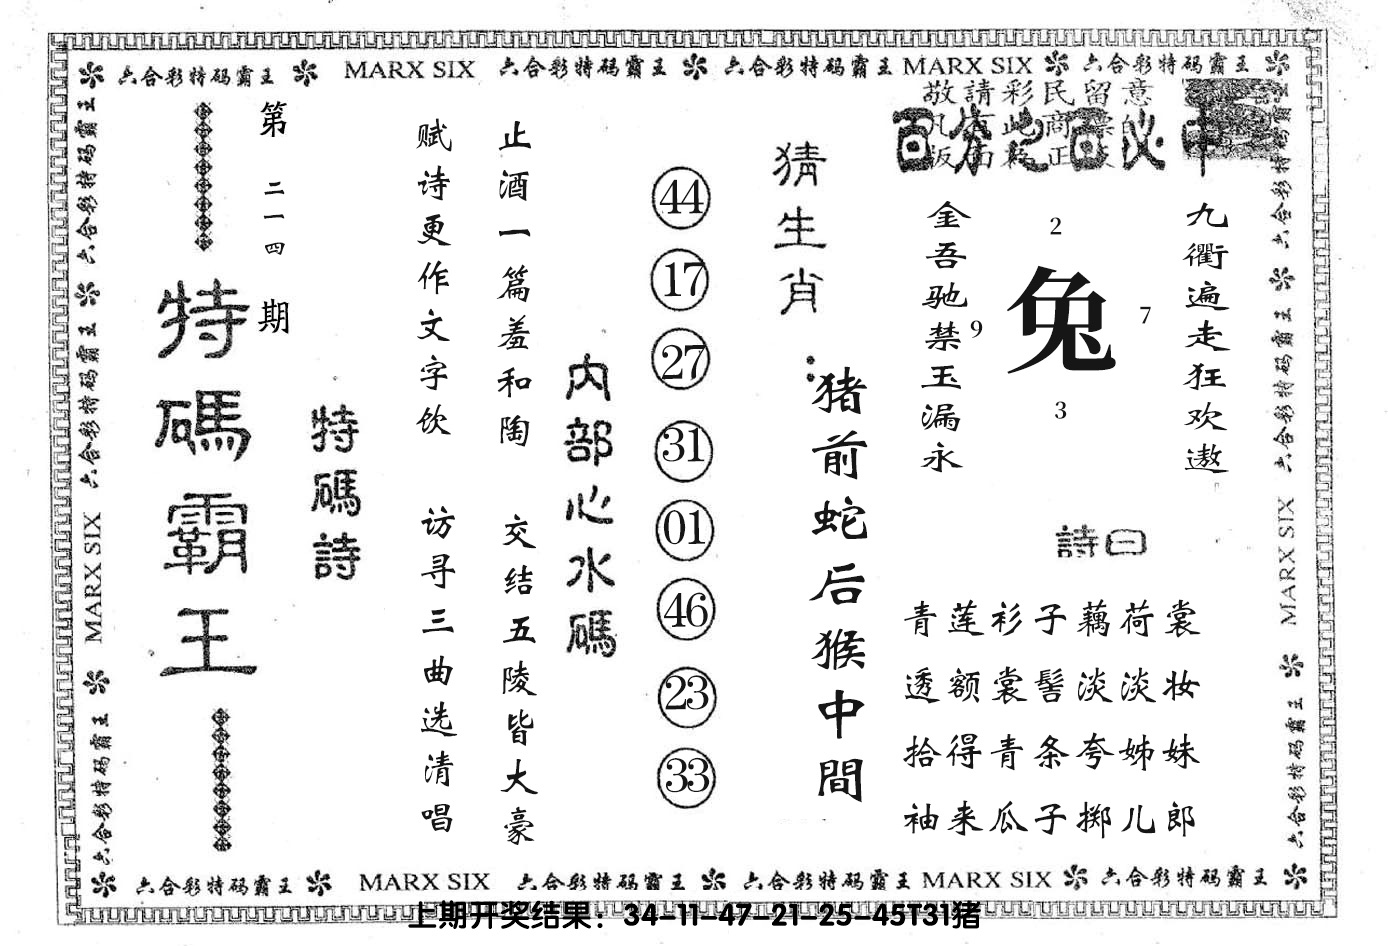 六合彩特码霸王 MARX SIX 六合彩特码霸王 六合彩特码霸王 MARX SIX 六合彩特码霸王
六合彩特码霸王 六合彩特码霸王 MARX SIX 六合彩特码霸王
特碼霸王
第二一四期
特碼詩
赋诗更作文字饮 访寻三曲选清唱
止酒一篇羞和陶 交结五陵皆大豪
内部心水碼
44
17
27
31
01
46
23
33
猜生肖：
猪前蛇后猴中間
敬請彩民留意
百分之百必中
金吾驰禁玉漏永
2
9
兔
7
3
九衢遍走狂欢遨
詩曰
青莲衫子藕荷裳
透额裳髻淡淡妆
拾得青条夸姊妹
袖来瓜子掷儿郎
六合彩特码霸王 六合彩特码霸王 MARX SIX 六合彩特码霸王
六合彩特码霸王 MARX SIX 六合彩特码霸王 六合彩特码霸王 MARX SIX 六合彩特码霸王
上期开奖结果：34-11-47-21-25-45T31猪